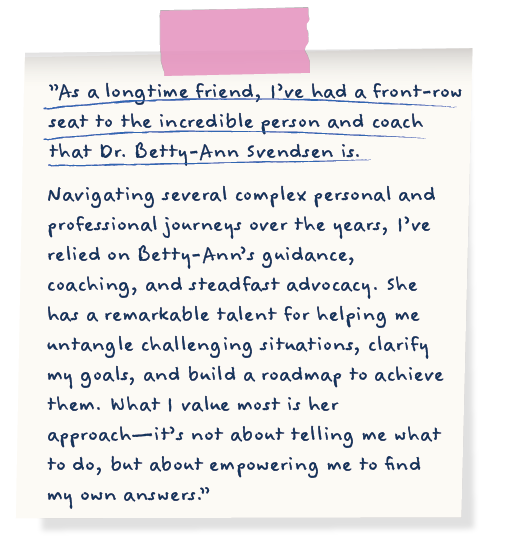 ”As a longtime friend, I’ve had a front-row
seat to the incredible person and coach
that Dr. Betty-Ann Svendsen is.
Navigating several complex personal and
professional journeys over the years, I’ve
relied on Betty-Ann’s guidance,
coaching, and steadfast advocacy. She
has a remarkable talent for helping me
untangle challenging situations, clarify
my goals, and build a roadmap to achieve
them. What I value most is her
approach—it’s not about telling me what
to do, but about empowering me to find
my own answers.”